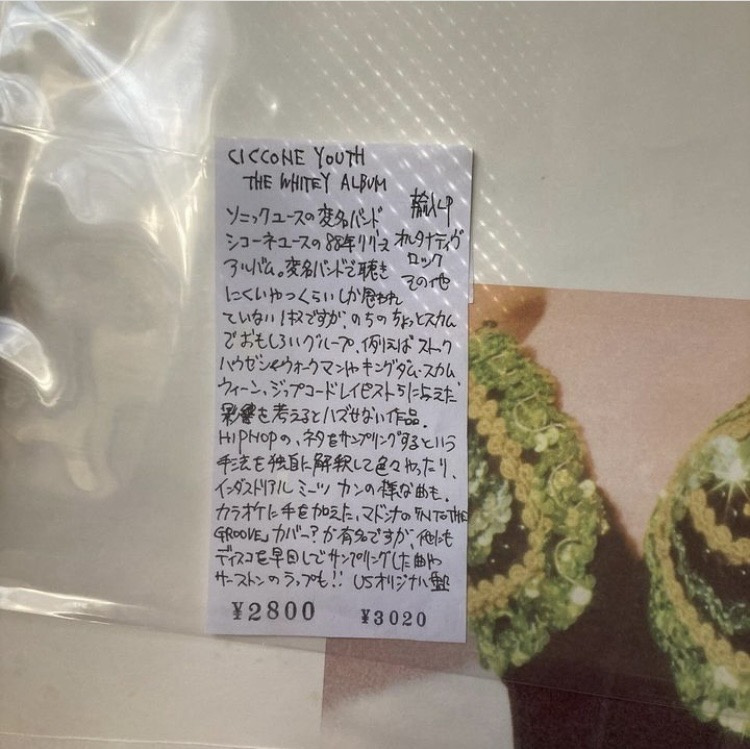 CICCONE YOUTH
THE WHITEY ALBUM
輸入LP
オルタナティヴ
ロック
その他
ソニックユースの変名バンド
シコーネユースの88年リリース
アルバム。変名バンドで聴き
にくいやつくらいしか思われ
ていないハズですが、のちのちょっとスカム
でおもしろいグループ、例えばストック
ハウゼン&ウォークマンやキングダム・スカム
ウィーン、ジップコードレイピストらに与えた
影響を考えるとハズせない作品.
HIPHOPの、ネタをサンプリングするという
手法を独自に解釈して色々やったり、
インダストリアル ミーツ カンの様な曲も.
カラオケに手を加えた、マドンナの「INTO THE
GROOVE」カバー?が有名ですが、他にも
ディスコを早回しでサンプリングした曲や
サーストンのラップも!! USオリジナル盤
¥2800 ¥3020